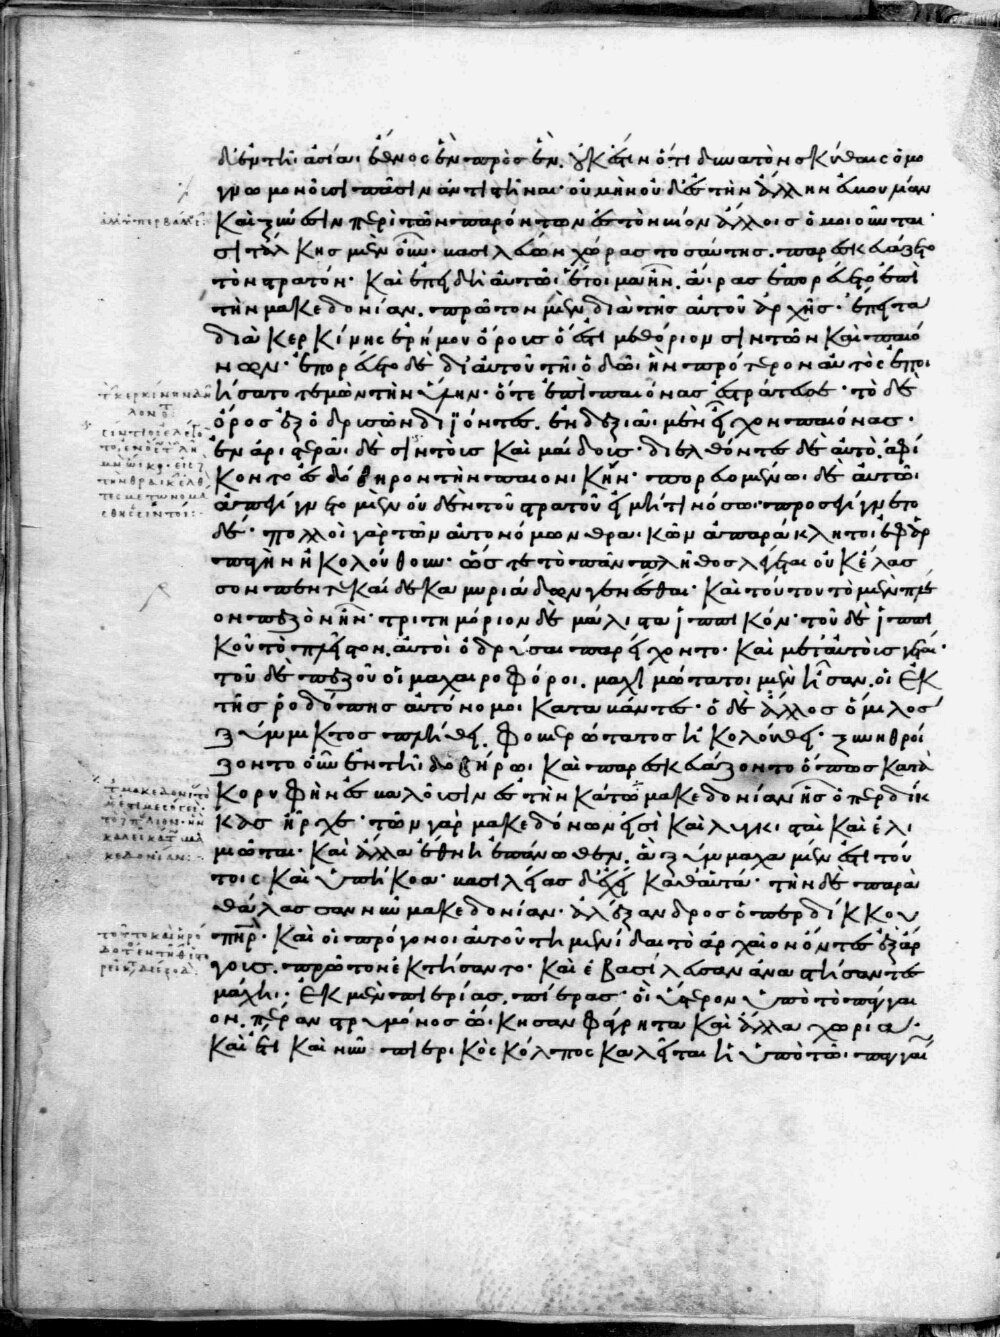 δ' ἐν τῆι ἀσίαι ἔθνος ἓν πρὸς ἓν. οὐκ ἔστιν ὅτι δυνατὸν σκύθαις ὁμο
γνωμονοῦσι πᾶσιν ἀντιστῆναι· οὐ μὴν οὐδ' ἐς τὴν ἄλλην εὐβουλίαν
καὶ ξύνεσιν περὶ τῶν παρόντων ἐς τὸν βίον ἄλλοις ὁμοιοῦνται·
σιτάλκης μὲν οὖν· βασιλεύων χώρας τοσαύτης. παρεσκευάζετο
τὸν στρατόν· καὶ ἐπειδὴ αὐτῶι· ἑτοῖμα ἦν. ἄρας ἐπορεύετο ἐπὶ
τὴν μακεδονίαν. πρῶτον μὲν διὰ τῆς αὐτοῦ ἀρχῆς· ἔπειτα
διὰ κερκίνης ἐρήμου ὄρους ὅ ἐστι μεθόριον σιντῶν καὶ παιό
νων· ἐπορεύετο δὲ δι' αὐτοῦ τῆι ὁδῶι· ἣν πρότερον αὐτὸς ἐποι
ήσατο τεμὼν τὴν ὕλην· ὅτε ἐπὶ παίονας ἐστράτευσε· τὸ δὲ
ὄρος ἐξ ὀδρυσῶν διϊόντες. ἐν δεξιᾶι· μὲν εἶχον παίονας·
ἐν ἀριστερᾶι· δὲ σιντοὺς καὶ μαίδους· διελθόντες δὲ αὐτὸ. ἀφί
κοντο ἐς δόβηρον τὴν παιονικήν· πορευομένωι δὲ αὐτῶι·
ἀπεγίγνετο μὲν οὐδὲν τοῦ στρατοῦ εἰ μή τι νόσωι· προσεγίγνετο
δέ· πολλοὶ γὰρ τῶν αὐτονόμων θραικῶν ἀπαράκλητοι ἐφ' ἁρ
παγὴν ἠκολούθουν· ὥστε τὸ πᾶν πλῆθος λέγεται οὐκ ἔλασ
σον πεντεκαίδεκα μυριάδων γενέσθαι· καὶ τούτου τὸ μὲν πλέ
ον πεζὸν ἦν· τριτημόριον δὲ μάλιστα ἱππικόν· τοῦ δὲ ἱππι
κοῦ τὸ πλεῖστον. αὐτοὶ ὀδρύσαι παρείχοντο· καὶ μετ' αὐτοὺς γέται·
τοῦ δὲ πεζοῦ οἱ μαχαιροφόροι. μαχιμώτατοι μὲν ἦσαν. οἱ ἐκ
τῆς ῥοδόπης αὐτόνομοι καταβάντες· ὁ δὲ ἄλλος ὅμιλος
ξύμμικτος πλήθει. φοβερώτατος ἠκολούθει· ξυνηθροί
ζοντο οὖν ἐν τῆι δοβήρωι· καὶ παρεσκευάζοντο ὅπως κατὰ
κορυφὴν ἐσβαλοῦσιν ἐς τὴν κάτω μακεδονίαν ἧς ὁ περδίκ
κας ἦρχε· τῶν γὰρ μακεδόνων εἰσὶ καὶ λυγκισταὶ καὶ ἐλι
μιῶται· καὶ ἄλλα ἔθνη ἐπάνωθεν. ἃ ξύμμαχα μέν ἐστι τού
τοις καὶ ὑπήκοα· βασιλείας δ' ἔχει καθ' αὑτά· τὴν δὲ παρὰ
θάλασσαν νῦν μακεδονίαν· ἀλέξανδρος ὁ περδίκκου
πατὴρ· καὶ οἱ πρόγονοι αὐτοῦ τημενίδαι τὸ ἀρχαῖον ὄντες ἐξ ἄρ
γους. πρῶτον ἐκτήσαντο· καὶ ἐβασίλευσαν ἀναστήσαντες
μάχηι· ἐκ μὲν πιερίας. πίερας· οἳ ὕστερον ὑπὸ τὸ πάγγαι
ον. πέραν στρυμόνος ὤικησαν φάγρητα καὶ ἄλλα χωρία·
καὶ ἔτι καὶ νῦν πιερικὸς κόλπος καλεῖται ἡ ὑπὸ τῶι· παγγαί